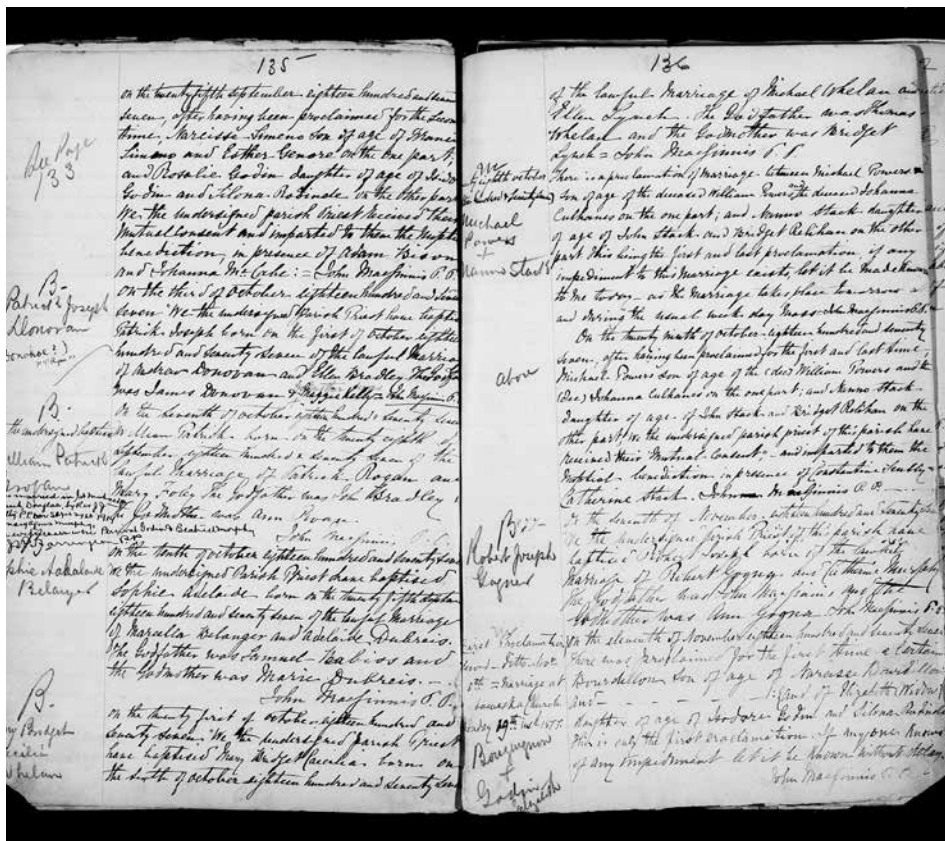 135
on the twentyfifth september eighteen hundred and seventy
seven, after having been proclaimed for the second
time, Narcisse Simeno son of age of
Simeno and Esther Genore on the one part;
and Rosalie Godin daughter of age of
Godin and on the other part
We, the undersigned parish Priest received their
mutual consent and imparted to them the nuptial
benediction, in presence of Adam Bison
and Johanna McCabe = John MacGinnis P.P.
on the third of October eighteen hundred and seventy
seven We the undersigned Parish Priest have baptised
Patrick Joseph born on the first of October eighteen
hundred and seventy seven of the lawful Marriage
of Andrew Donovan and Ellen Bradley The Godfather
was James Donovan & Maggie Kelly = John MacGinnis P.
On the seventh of October eighteen hundred seventy seven
William Patrick born on the twenty eighth of
september eighteen hundred & seventy seven of the
lawful Marriage of Patrick Rogan and
Mary Foley The Godfather was John Bradley
the Godmother was Ann
John MacGinnis P.P.
on the tenth of October eighteen hundred and seventy seven
We the undersigned Parish Priest have baptised
Sophie Adelaide born on the twenty fifth september
eighteen hundred and seventy seven of the lawful Marriage
of Marcella Belanger and Adelaide Dubrais.
The Godfather was Samuel and
the Godmother was Marie Dubrais.
John MacGinnis P.P.
on the twenty first of October eighteen hundred and
seventy seven We the undersigned parish Priest
have baptised Mary Bridget Caecilia born on
the sixth of October eighteen hundred and seventy seven
See Page
133
B.
Patrick Joseph
Donovan
B.
the undersigned baptised
William Patrick
Sophie Adelaide
Belanger
B.
Mary Bridget
Whelan
136
of the lawful Marriage of Michael Whelan and
Ellen Lynch. The Godfather was Thomas
Whelan and the Godmother was Bridget
Lynch = John MacGinnis P.P.
There is a proclamation of Marriage between Michael Powers
son of age of the deceased William Powers and the deceased Johanna
Culhanes on the one part; and Nanno Stack daughter
of age of John Stack and Bridget Relihan on the other
part This being the first and last proclamation, if any
impediment to this Marriage exists, let it be made known
to me today as the Marriage takes place tomorrow
and during the usual week day Mass John MacGinnis P.P.
On the twenty ninth of October eighteen hundred and seventy
seven, after having been proclaimed for the first and last time,
Michael Powers son of age of the (dec) William Powers and the
(Dec) Johanna Culhanes on the one part; and Nanno Stack
daughter of age of John Stack and Bridget Relihan on the
other part; We the undersigned parish priest of this parish have
received their "Mutual Consent" and imparted to them the
Nuptial benediction in presence of Constantine
Catherine Stack. John MacGinnis P.P.
On the seventh of November, eighteen hundred and seventy seven
We the undersigned parish Priest of this parish have
baptised Robert Joseph born of the lawful
marriage of Robert Gogner and Catharine
the Godfather was John MacGinnis and the
Godmother was Ann Gogner John MacGinnis P.P.
On the eleventh of November eighteen hundred and seventy seven
there was proclaimed for the first time a certain
Bourdillon son of age of Narcisse Bourdillon
and
daughter of age of Isodore Godin and
this is only the first proclamation. If any one knows
of any impediment let it be known without delay.
John MacGinnis P.P.
eighth October
Michael
Powers
+
Nanno Stack
above
B
Robert Joseph
Gogner
First Proclamation
Second Ditto Nov
marriage at
Church
19th
+
Godin
Elizabeth